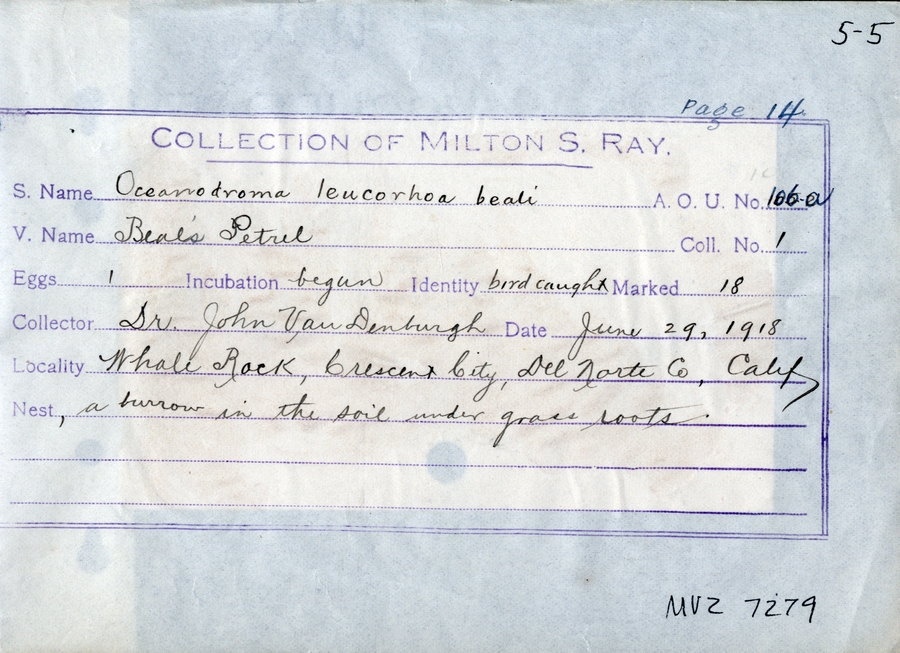 5-5
Page 14
COLLECTION OF MILTON S. RAY.
S. Name Oceanodroma leucorhoa beali A. O. U. No. 106-a
V. Name Beal's Petrel Coll. No. 1
Eggs 1 Incubation begun Identity bird caught Marked 18
Collector Dr. John Van Denburgh Date June 29, 1918
Locality Whale Rock, Crescent City, Del Norte Co, Calif
Nest, a burrow in the soil under grass roots.
MVZ 7279